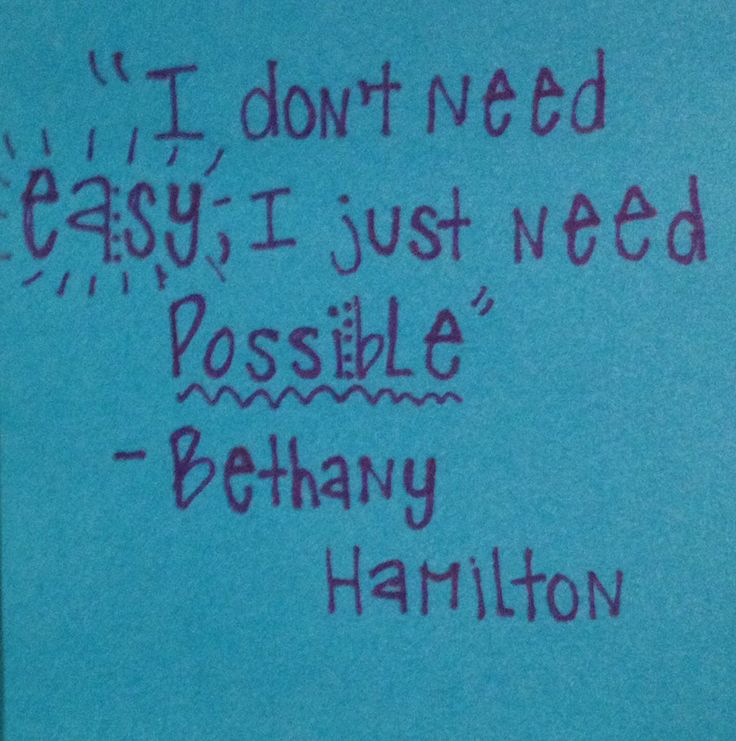 "I don't need
easy, I just need
Possible"
- Bethany
Hamilton